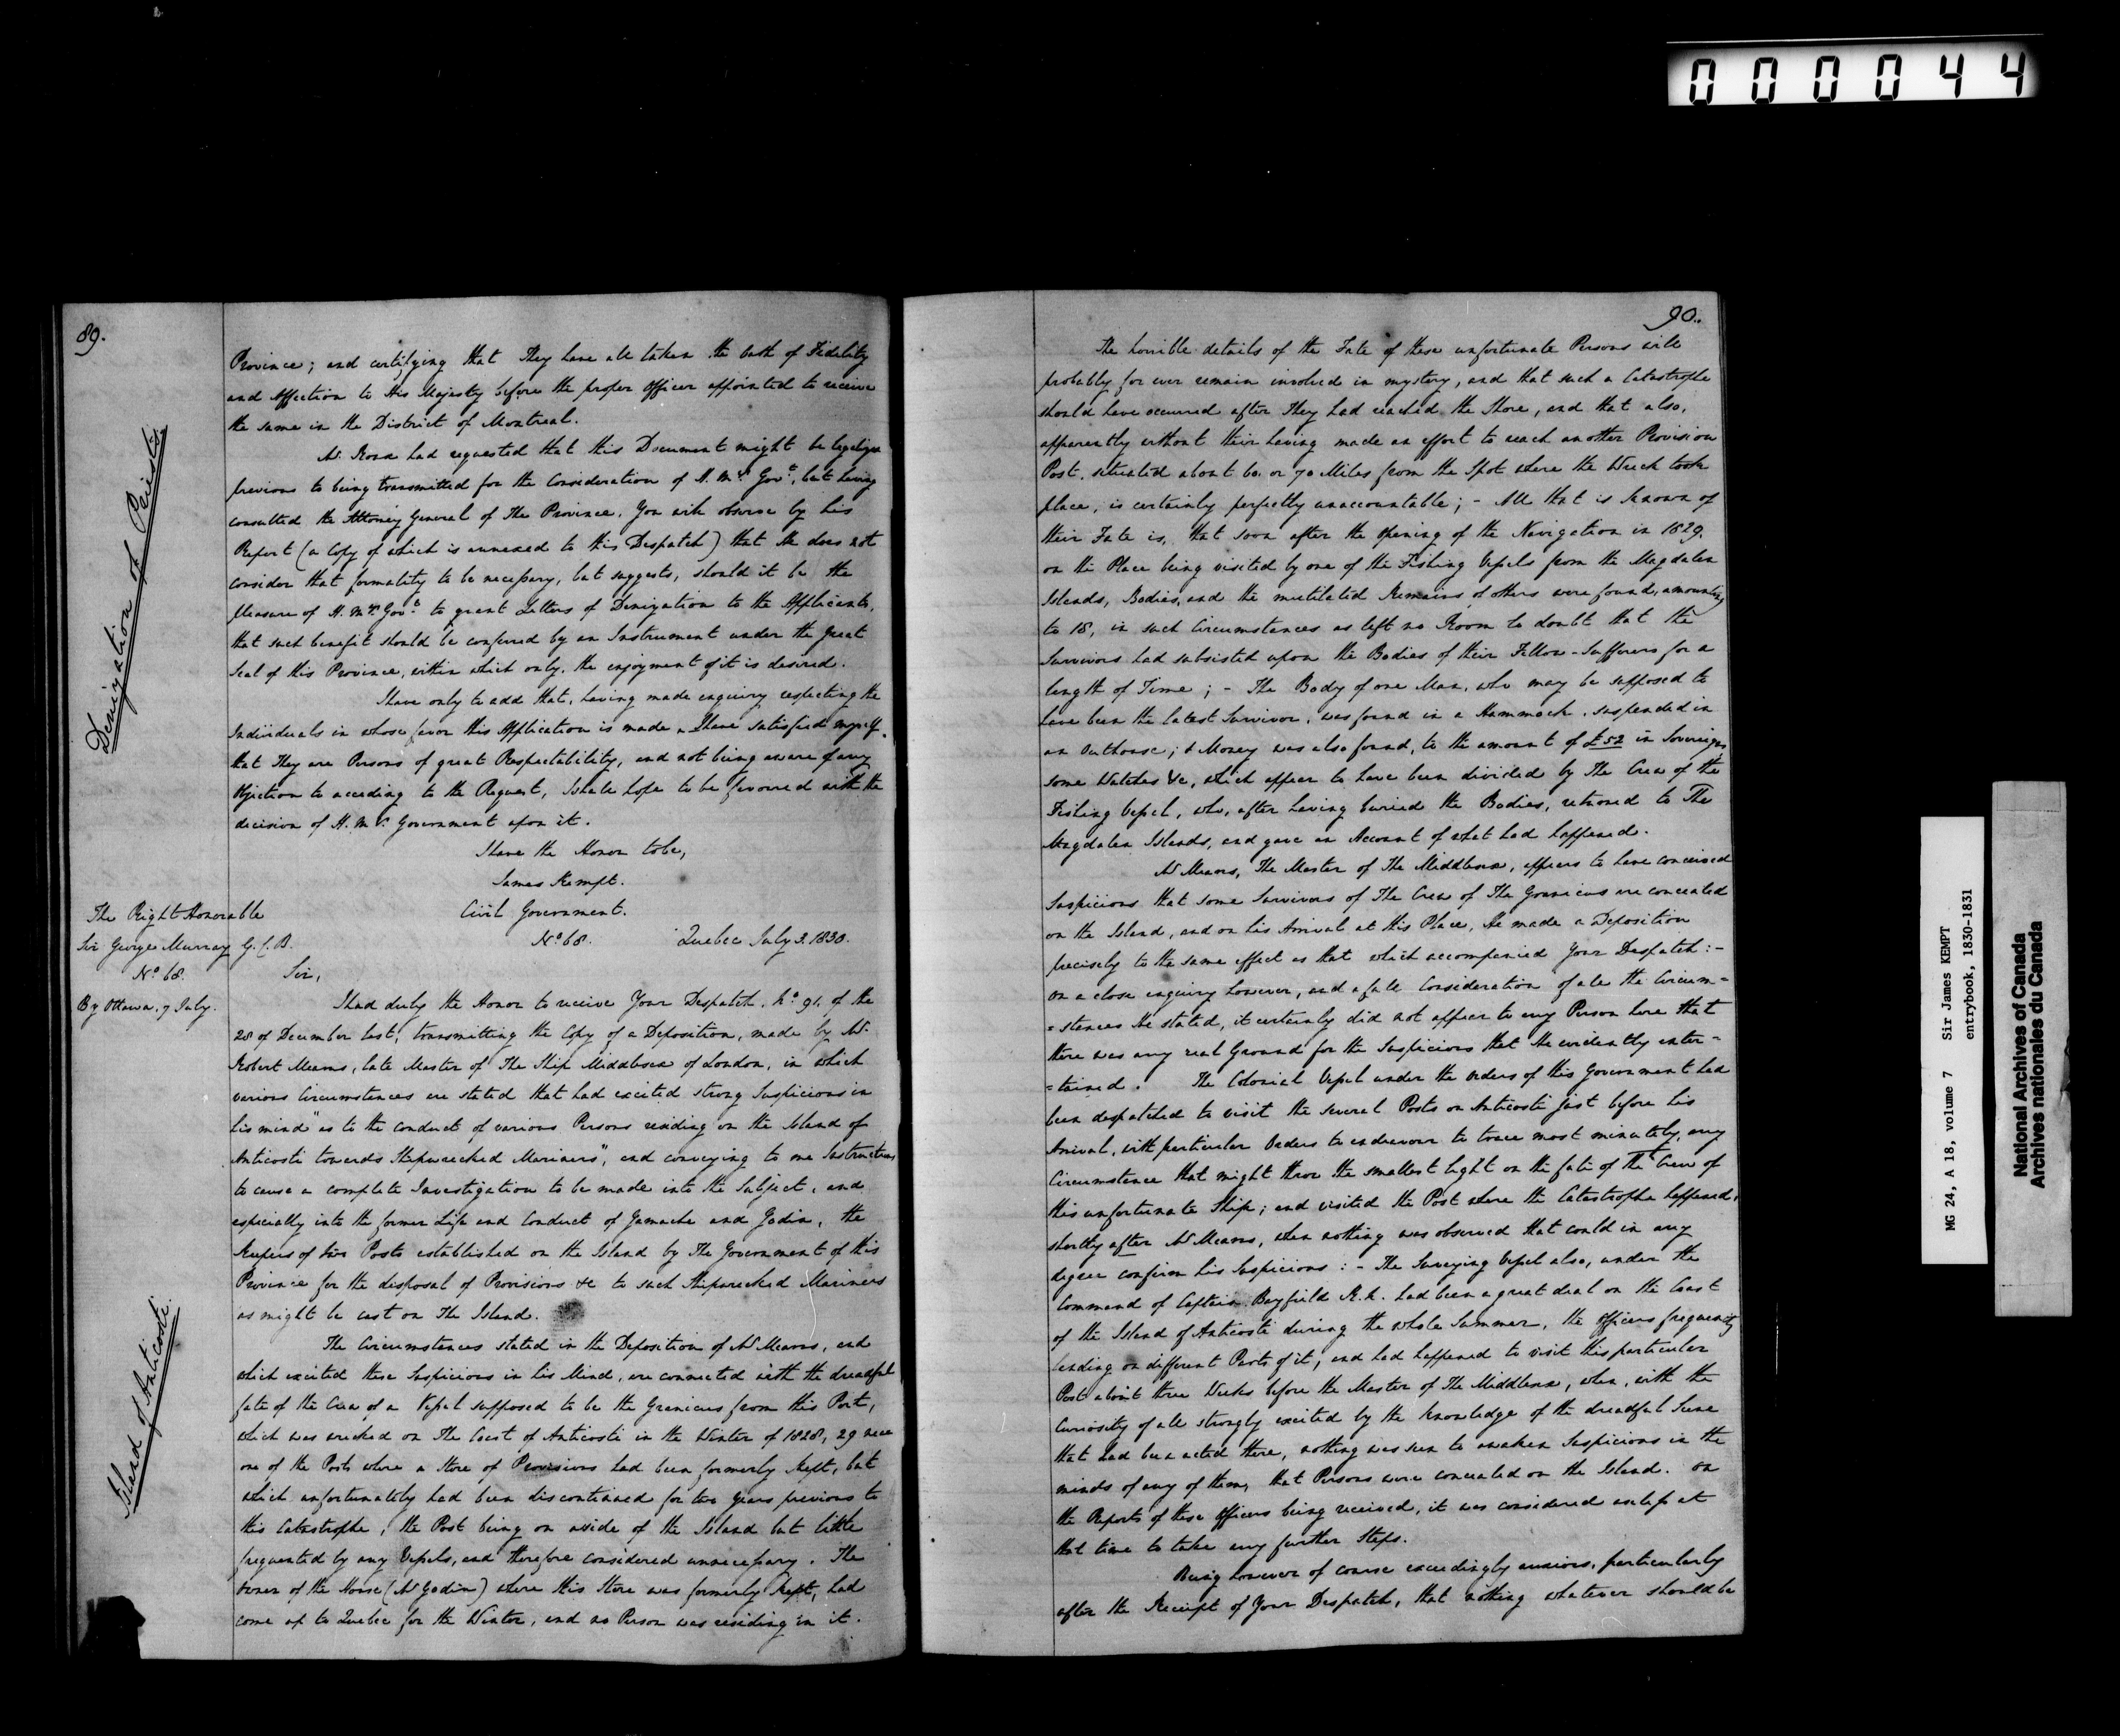 000044
89.
Denization of Priests.
Province; and certifying that They have all taken the Oath of Fidelity
and Affection to His Majesty before the proper Officer appointed to receive
the same in the District of Montreal.
Mr. Roux had requested that this Document might be legalized
previous to being transmitted for the Consideration of H. M's. Govt., but having
consulted the Attorney General of The Province, You will observe by his
Report (a Copy of which is annexed to this Despatch) that He does not
consider that formality to be necessary, but suggests, should it be the
Pleasure of H. M's. Govt. to grant Letters of Denization to the Applicants,
that such benefit should be conferred by an Instrument under the Great
Seal of this Province, within which only, the enjoyment of it is desired.
I have only to add that, having made enquiry respecting the
Individuals in whose favor this Application is made, I have satisfied myself,
that They are Persons of great Respectability, and not being aware of any
Objection to acceding to the Request, I shall hope to be favoured with the
decision of H. M's. Government upon it.
I have the Honor to be,
James Kempt.
The Right Honorable
Sir George Murray G.C.B.
No. 68.
By Ottawa. 7 July.
Civil Government.
No. 68. Quebec July 3. 1830.
Sir,
Island of Anticosti.
I had duly the Honor to receive Your Despatch. No. 91. of the
28 of December last, transmitting the Copy of a Deposition, made by Mr.
Robert Mearns, late Master of The Ship Middlesex of London, in which
various Circumstances are stated that had excited strong Suspicions in
his mind "as to the conduct of various Persons residing on the Island of
Anticosti towards Shipwrecked Mariners", and conveying to me Instructions
to cause a complete Investigation to be made into the Subject, and
especially into the former Life and Conduct of Gamache and Godin, the
Keepers of two Posts established on the Island by The Government of this
Province for the disposal of Provisions &c to such Shipwrecked Mariners
as might be cast on The Island.
The Circumstances stated in the Deposition of Mr Mearns, and
which excited these Suspicions in his Mind, are connected with the dreadful
fate of the Crew of a Vessel supposed to be the Granicus from this Port,
which was wrecked on The Coast of Anticosti in the Winter of 1828, 29 near
one of the Posts where a Store of Provisions had been formerly kept, but
which unfortunately had been discontinued for two Years previous to
this Catastrophe, the Post being on a side of the Island but little
frequented by any Vessels, and therefore considered unnecessary. The
Owner of the House (Mr Godin) where this Store was formerly kept, had
come up to Quebec for the Winter, and no Person was residing in it.
90.
The horrible details of the Fate of these unfortunate Persons will
probably for ever remain involved in mystery, and that such a Catastrophe
should have occurred after They had reached the Shore, and that also,
apparently without their having made an effort to reach another Provision
Post, situated about 60 or 70 Miles from the Spot where the Wreck took
place, is certainly perfectly unaccountable; - All that is known of
their Fate is, that soon after the opening of the Navigation in 1829,
on the Place being visited by one of the Fishing Vessels from the Magdalen
Islands, Bodies, and the mutilated Remains of others were found, amounting
to 18, in such Circumstances as left no Room to doubt that the
Survivors had subsisted upon the Bodies of their Fellow-Sufferers for a
length of Time; - The Body of one Man, who may be supposed to
have been the latest Survivor, was found in a Hammock, suspended in
an Outhouse; & Money was also found, to the amount of £52 in Sovereigns
some Watches &c, which appear to have been divided by The Crew of the
Fishing Vessel, who, after having buried the Bodies, returned to The
Magdalen Islands, and gave an Account of what had happened.
Mr Mearns, The Master of The Middlesex, appears to have conceived
Suspicions that some Survivors of The Crew of The Granicus are concealed
on the Island, and on his Arrival at this Place, He made a Deposition
precisely to the same effect as that which accompanied Your Despatch: -
on a close enquiry however, and a full Consideration of all the Circum=
=stances He stated, it certainly did not appear to any Person here that
there was any real Ground for the Suspicions that He evidently enter=
=tained. The Colonial Vessel under the Orders of this Government had
been despatched to visit the several Posts on Anticosti just before his
Arrival, with particular Orders to endeavour to trace most minutely, any
Circumstance that might throw the smallest light on the fate of The Crew of
this unfortunate Ship; and visited the Post where the Catastrophe happened,
shortly after Mr Mearns, when nothing was observed that could in any
degree confirm his Suspicions: - The Surveying Vessel also, under the
Command of Captain Bayfield R.N. had been a great deal on the Coast
of the Island of Anticosti during the whole Summer, the Officers frequently
landing on different Parts of it, and had happened to visit this particular
Post about three Weeks before the Master of The Middlesex, when, with the
Curiosity of all strongly excited by the knowledge of the dreadful Scene
that had been acted there, nothing was seen to awaken Suspicions in the
minds of any of them, that Persons were concealed on the Island. On
the Reports of these Officers being received, it was considered useless at
that time to take any further Steps.
Being however of course exceedingly anxious, particularly
after the Receipt of Your Despatch, that nothing whatever should be
MG 24, A 18, volume 7 Sir James KEMPT
entrybook, 1830-1831
National Archives of Canada
Archives nationales du Canada